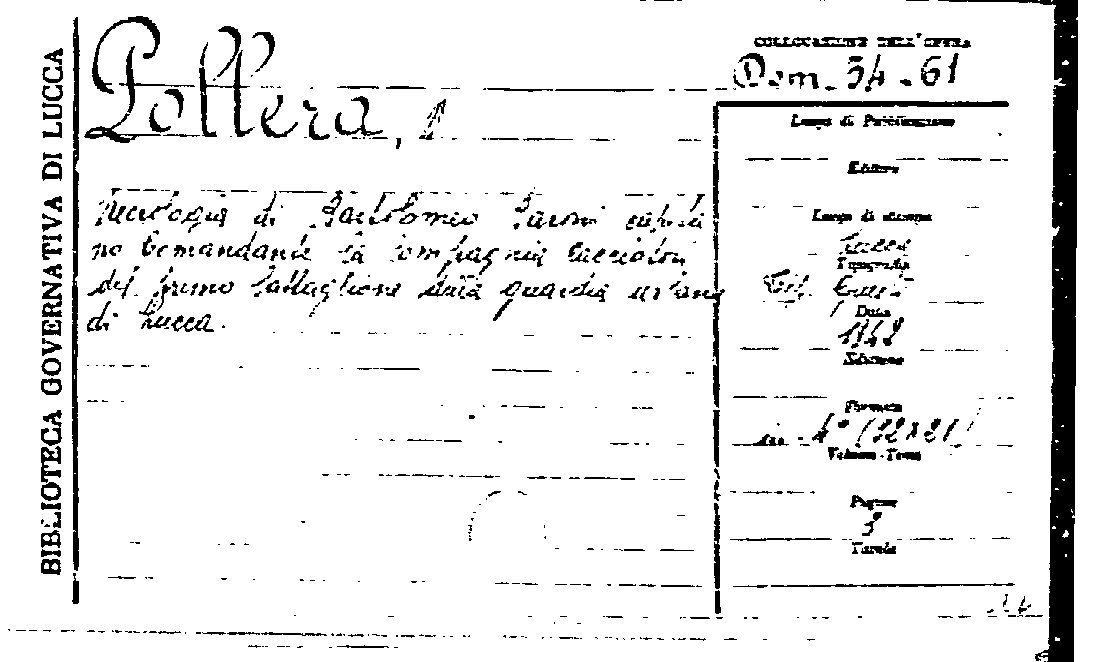 BIBLIOTECA GOVERNATIVA DI LUCCA
Pollera,
Necrologia di Bartolomeo Baroni capita
no Comandante la Compagnia Cacciatori
del primo battaglione della guardia urbana
di Lucca.
COLLOCAZIONE DELL'OPERA
Dom. 34-61
Luogo di Pubblicazione
Editore
Luogo di stampa
Lucca
Tipografia
Tip.
Data
1848
Edizione
Formato
in 4° (32x21)
Volume-Tomi
Pagine
Tavole